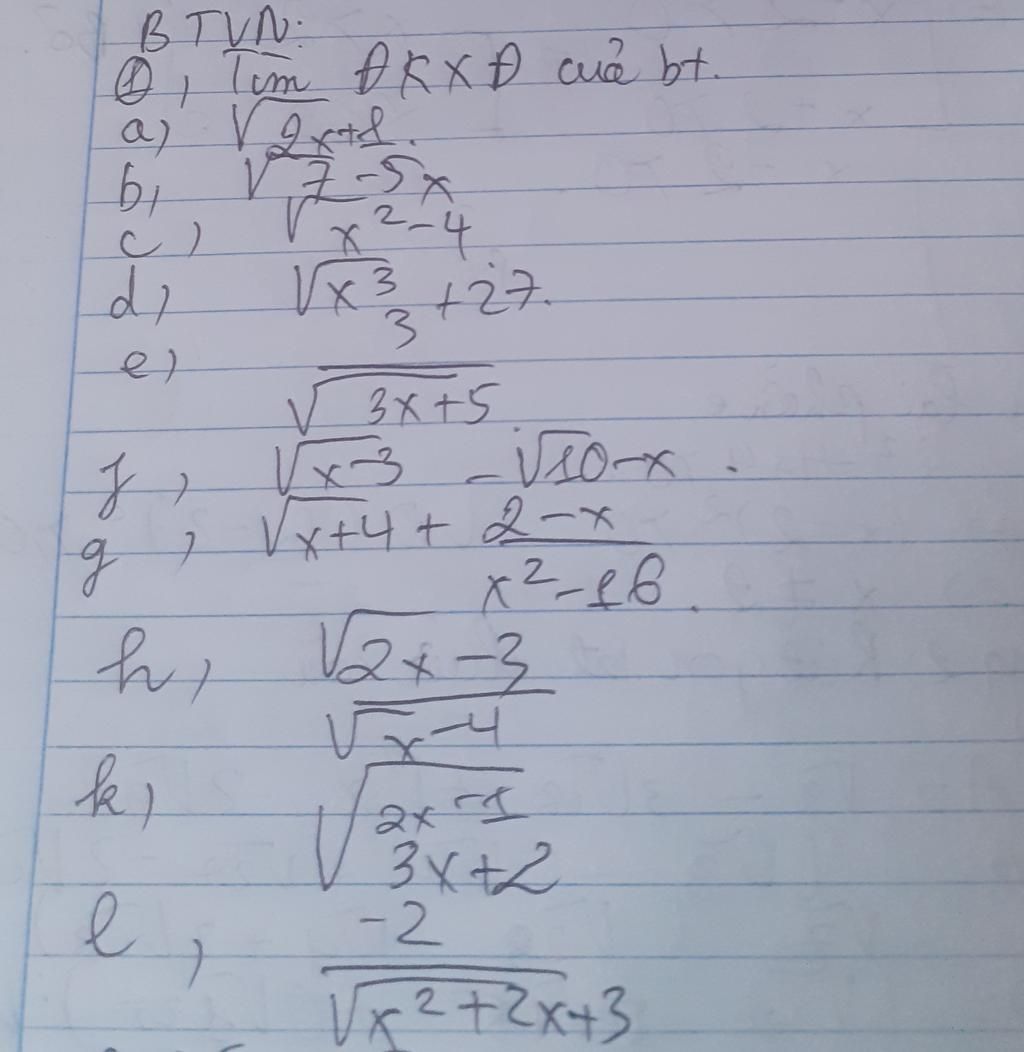 BTVN:
①, Tìm ĐKXĐ cuả bt.
a, √2x+1.
b, √7-5x
c) √x²-4
d, √x³+27.
e) 3/√3x+5
f, √x-3 - √10-x.
g, √x+4 + 2-x/x²-16.
h, √2x-3/√x-4
k) √2x-1/3x+2
l, -2/√x²+2x+3